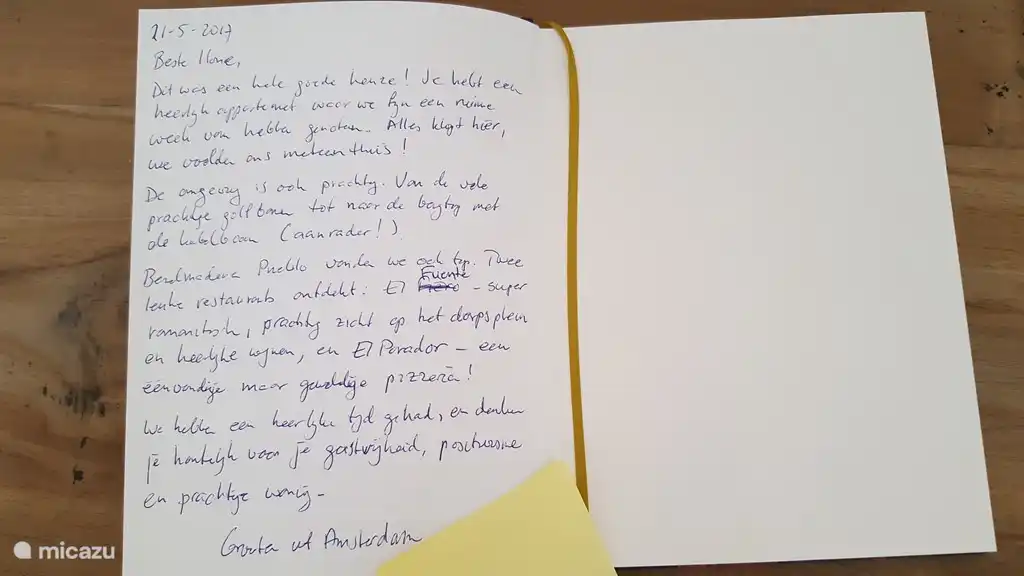 21-5-2017
Beste Ilone,
Dit was een hele goede keuze! Je hebt een
heerlijk appartement waar we fijn een ruime
week van hebben genoten. Alles klopt hier,
we voelden ons meteen thuis!
De omgeving is ook prachtig. Van de vele
prachtige golfbanen tot naar de bergtop met
de kabelbaan (aanrader!).
Benalmadena Pueblo vonden we ook top. Twee
leuke restaurants ontdekt: El Fuente - super
romantisch, prachtig zicht op het dorpsplein
en heerlijke wijnen, en El Parador - een
éénvoudige maar geweldige pizzeria!
We hebben een heerlijke tijd gehad, en danken
je hartelijk voor je gastvrijheid, positivisme
en prachtige woning -
Groeten uit Amsterdam
micazu